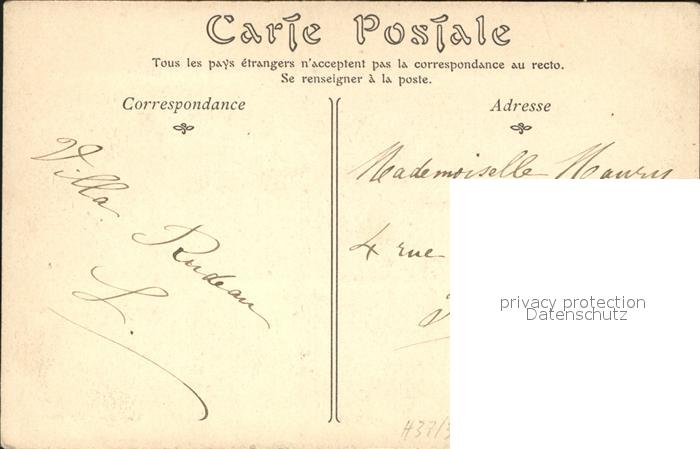 Carte Postale
Tous les pays étrangers n'acceptent pas la correspondance au recto.
Se renseigner à la poste.
Correspondance
Adresse
Villa
Rudeau
L.
Mademoiselle
4 rue
privacy protection
Datenschutz